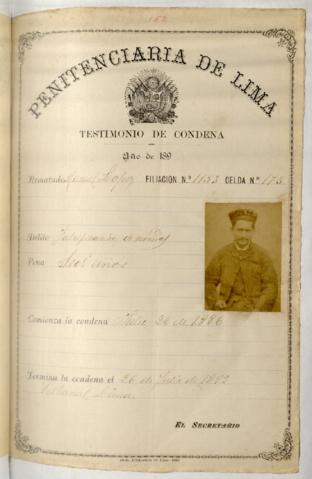 162
PENITENCIARIA DE LIMA
TESTIMONIO DE CONDENA
Año de 189
Rematado Manuel Lopez FILIACION N.º 1153 CELDA N.º 173
Delito Falsificación de monedas
Pena Seis años
Comienza la condena Julio 26 de 1886
Termina la condena el 26 de Julio de 1892
EL SECRETARIO